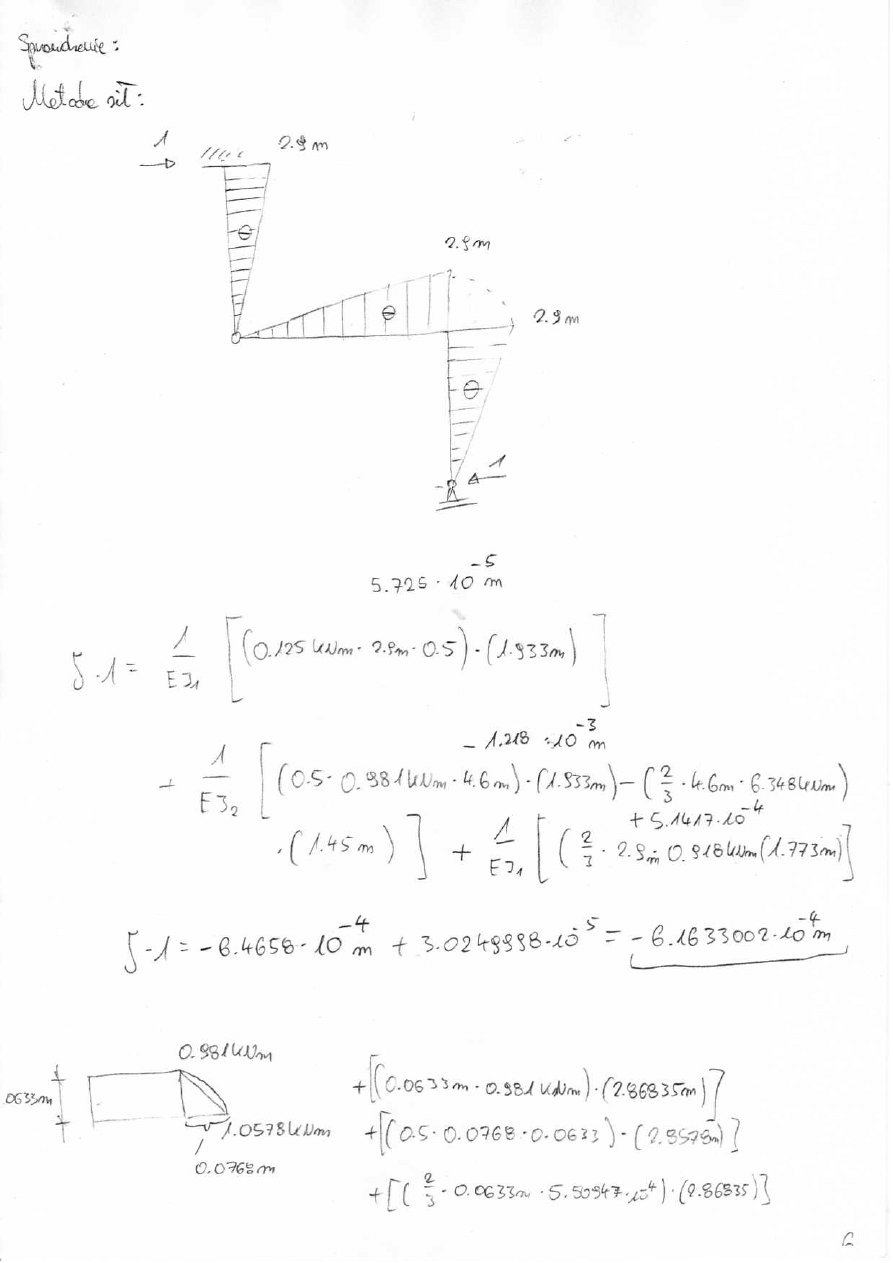 Sprawdzenie:
Metoda sił:
1
2.9 m
2.9 m
2.9 m
1
5.725 · 10⁻⁵ m
δ · 1 = 1/EJ₁ [(0.125 kNm · 2.9m · 0.5) · (1.933m)]
- 1.218 · 10⁻³ m
+ 1/EJ₂ [(0.5 · 0.981kNm · 4.6m) · (1.933m) - (2/3 · 4.6m · 6.348kNm)
+ 5.1417 · 10⁻⁴
· (1.45m)] + 1/EJ₁ [(2/3 · 2.9m · 0.918kNm (1.773m)]
δ · 1 = -6.4658 · 10⁻⁴ m + 3.0249998 · 10⁻⁵ = -6.1633002 · 10⁻⁴ m
0.981kNm
.0633m
1.0578kNm
0.0768m
+[(0.0633m · 0.981 kNm) · (2.86835m)]
+[(0.5 · 0.0768 · 0.0633) · (2.8578m)]
+[(2/3 · 0.0633m · 5.50947 · 10⁻⁴) · (2.86835)]